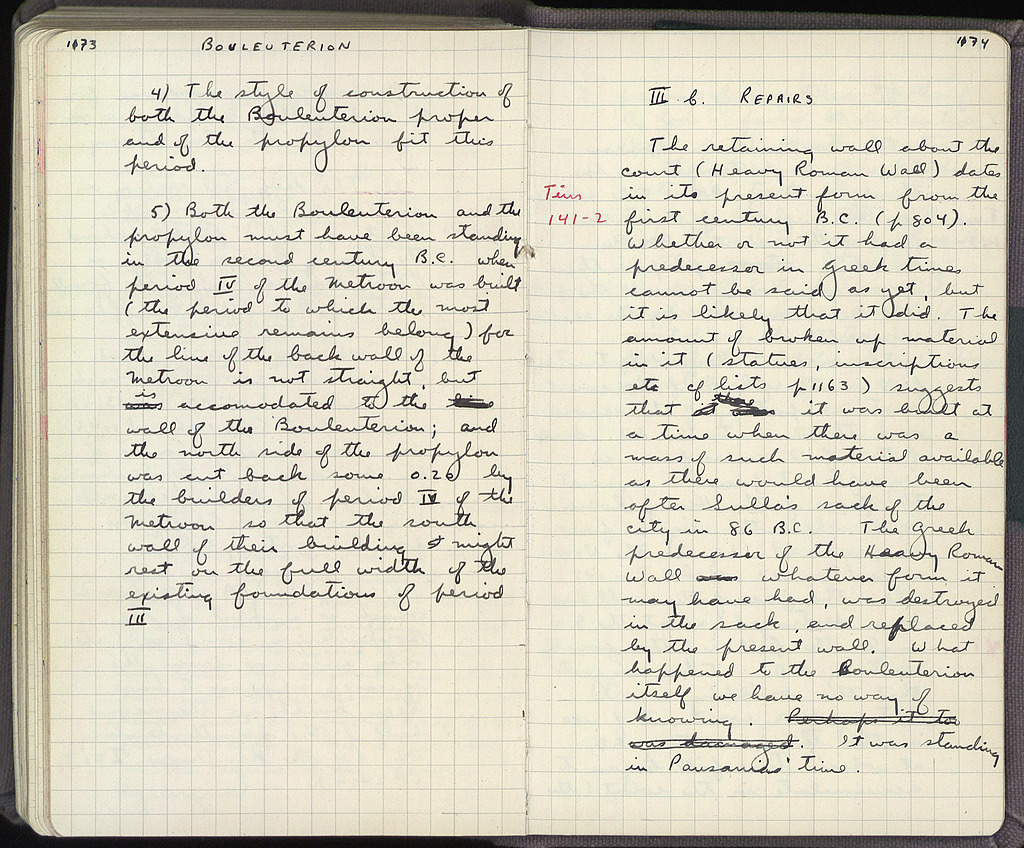 1073
BOULEUTERION
4) The style of construction of
both the Bouleuterion proper
and of the propylon fit this
period.
5) Both the Bouleuterion and the
propylon must have been standing
in the second century B.C. when
period IV of the Metroon was built
(the period to which the most
extensive remains belong) for
the line of the back wall of the
Metroon is not straight, but
is accomodated to the
wall of the Bouleuterion; and
the north side of the propylon
was cut back some 0.20 by
the builders of period IV of the
Metroon so that the south
wall of their building might
rest on the full width of the
existing foundations of period
III
1074
III b. REPAIRS
The retaining wall about the
court (Heavy Roman Wall) dates
in its present form from the
first century B.C. (p 804).
Whether or not it had a
predecessor in Greek times
cannot be said as yet, but
it is likely that it did. The
amount of broken up material
in it (statues, inscriptions
etc cf lists p 1163) suggests
that it was built at
a time when there was a
mass of such material available
as there would have been
after Sulla's sack of the
city in 86 B.C. The Greek
predecessor of the Heavy Roman
Wall whatever form it
may have had, was destroyed
in the sack, and replaced
by the present wall. What
happened to the Bouleuterion
itself we have no way of
knowing. Perhaps it too
was damaged. It was standing
in Pausanias' time.
141-2